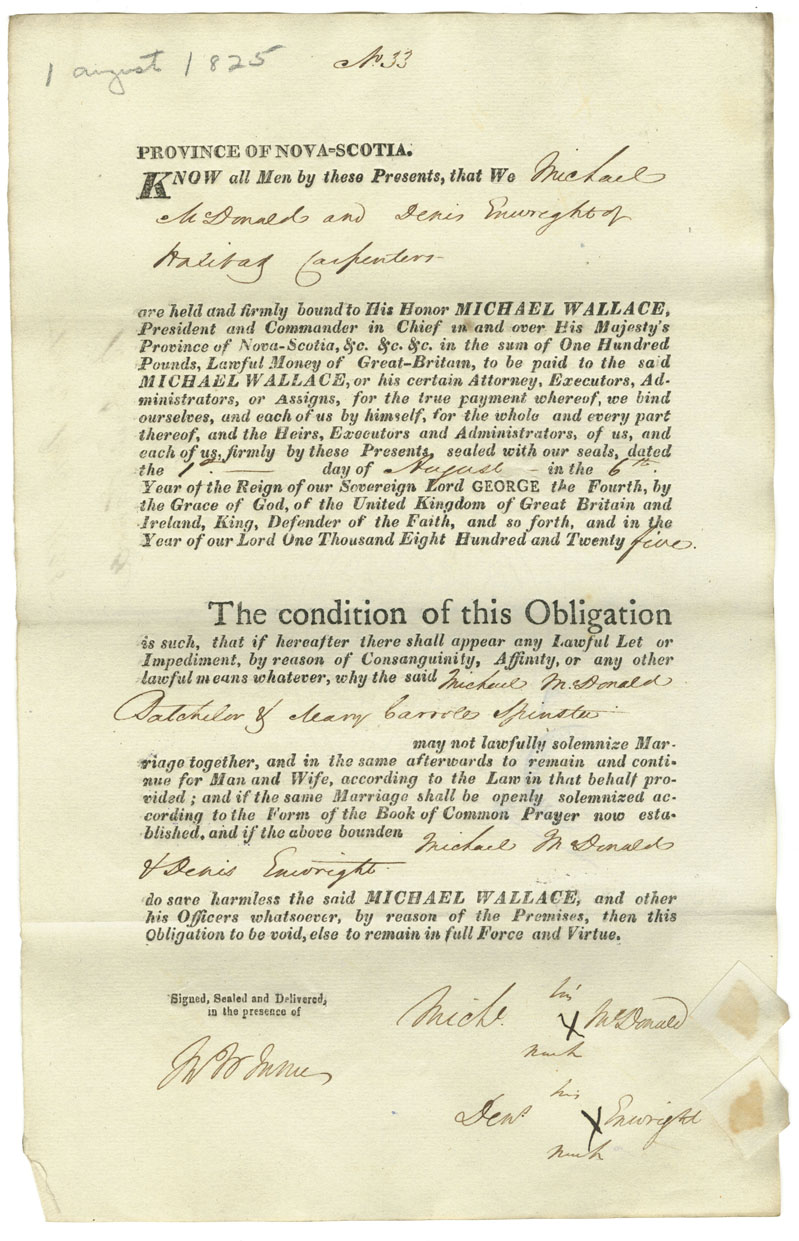 1 august 1825
No. 33
PROVINCE OF NOVA-SCOTIA.
KNOW all Men by these Presents, that We Michael
McDonald and Denis Enwright of
Halifax Carpenters
are held and firmly bound to His Honor MICHAEL WALLACE,
President and Commander in Chief in and over His Majesty's
Province of Nova-Scotia, &c. &c. &c. in the sum of One Hundred
Pounds, Lawful Money of Great-Britain, to be paid to the said
MICHAEL WALLACE, or his certain Attorney, Executors, Ad-
ministrators, or Assigns, for the true payment whereof, we bind
ourselves, and each of us by himself, for the whole and every part
thereof, and the Heirs, Executors and Administrators, of us, and
each of us, firmly by these Presents, sealed with our seals, dated
the 1st day of August in the 6th.
Year of the Reign of our Sovereign Lord GEORGE the Fourth, by
the Grace of God, of the United Kingdom of Great Britain and
Ireland, King, Defender of the Faith, and so forth, and in the
Year of our Lord One Thousand Eight Hundred and Twenty five.
The condition of this Obligation
is such, that if hereafter there shall appear any Lawful Let or
Impediment, by reason of Consanguinity, Affinity, or any other
lawful means whatever, why the said Michael McDonald
Batchelor & Mary Carroll Spinster
may not lawfully solemnize Mar-
riage together, and in the same afterwards to remain and conti-
nue for Man and Wife, according to the Law in that behalf pro-
vided; and if the same Marriage shall be openly solemnized ac-
cording to the Form of the Book of Common Prayer now esta-
blished, and if the above bounden Michael McDonald
& Denis Enwright
do save harmless the said MICHAEL WALLACE, and other
his Officers whatsoever, by reason of the Premises, then this
Obligation to be void, else to remain in full Force and Virtue.
Signed, Sealed and Delivered,
in the presence of
his
Michl. X McDonald
mark
his
Dens X Enwright
mark